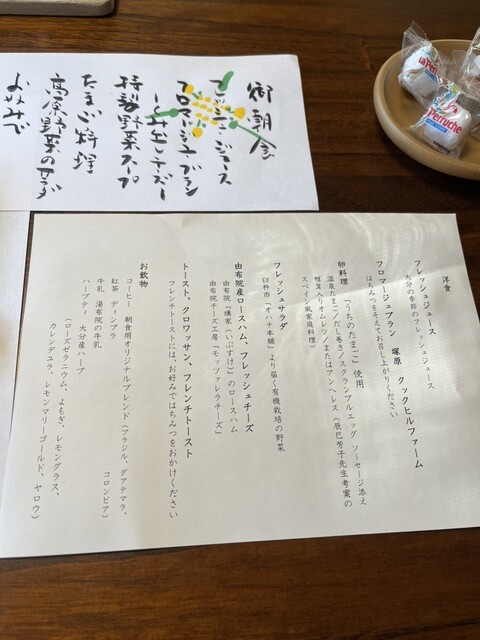 御朝食
フレッシュジュース
フロマージュブラン
特製野菜スープ
たまご料理
高原野菜のサラダ
お飲みもの
洋食
フレッシュジュース
大分の季節のフレッシュジュース
フロマージュブラン 塚原 クックヒルファーム
はちみつをそえてお召し上がりください
卵料理 「うちのたまご」使用
温泉たまご/だし巻き/スクランブルエッグ ソーセージ添え
椎茸入りオムレツ/またはアンヘレス(辰巳芳子先生考案の
スペイン風家庭料理)
フレッシュサラダ
臼杵市「オハナ本舗」より届く有機栽培の野菜
由布院産ロースハム、フレッシュチーズ
由布院「燻家(いぶすけ)」のロースハム
由布院チーズ工房「モッツァレラチーズ」
トースト、クロワッサン、フレンチトースト
フレンチトーストには、お好みではちみつをおかけください
お飲物
コーヒー 朝食用オリジナルブレンド(ブラジル、グアテマラ、
コロンビア)
紅茶 ディンブラ
牛乳 湯布院の牛乳
ハーブティ 大分産ハーブ
(ローズゼラニウム、よもぎ、レモングラス、
カレンデュラ、レモンマリーゴールド、ヤロウ)
La Perruche
Perruche